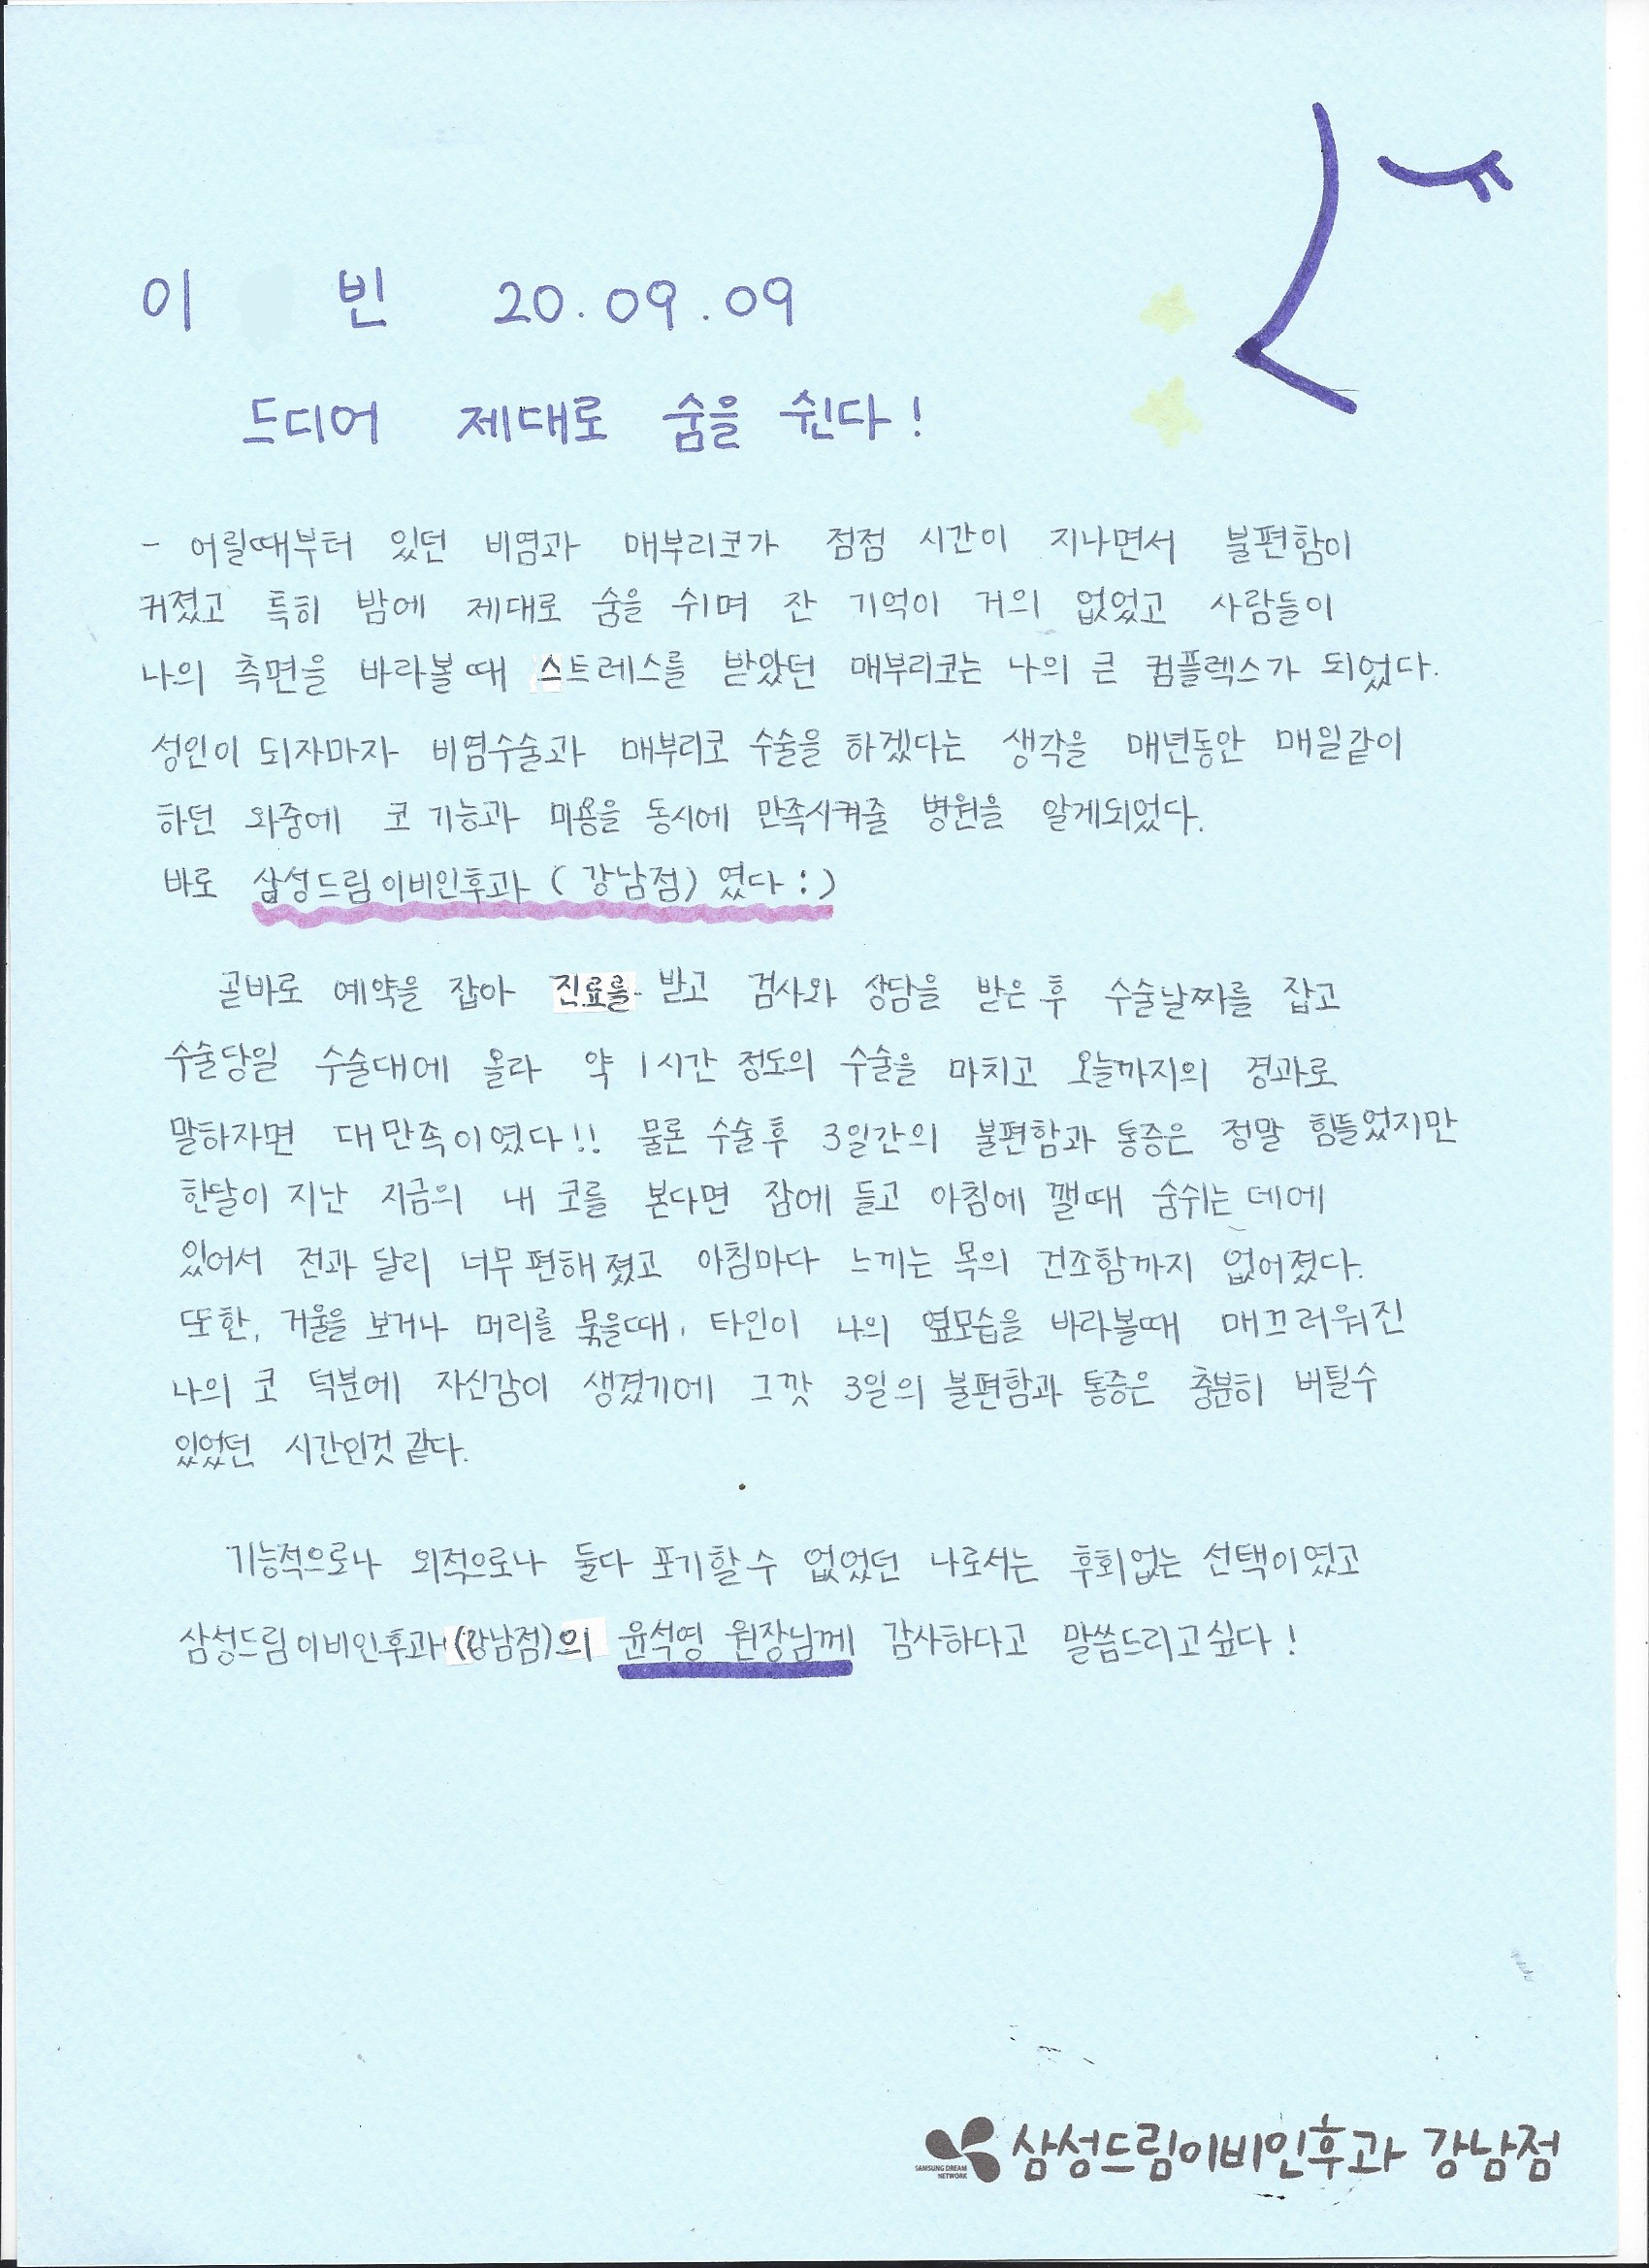 이 빈 20.09.09
드디어 제대로 숨을 쉰다!
- 어릴때부터 있던 비염과 매부리코가 점점 시간이 지나면서 불편함이
커졌고 특히 밤에 제대로 숨을 쉬며 잔 기억이 거의 없었고 사람들이
나의 측면을 바라볼때 스트레스를 받았던 매부리코는 나의 큰 컴플렉스가 되었다.
성인이 되자마자 비염수술과 매부리코 수술을 하겠다는 생각을 매년동안 매일같이
하던 와중에 코 기능과 미용을 동시에 만족시켜줄 병원을 알게되었다.
바로 삼성드림이비인후과 (강남점) 였다 :)
곧바로 예약을 잡아 진료를 받고 검사와 상담을 받은 후 수술날짜를 잡고
수술당일 수술대에 올라 약 1시간 정도의 수술을 마치고 오늘까지의 경과로
말하자면 대만족이였다!! 물론 수술후 3일간의 불편함과 통증은 정말 힘들었지만
한달이 지난 지금의 내 코를 본다면 잠에 들고 아침에 깰때 숨쉬는 데에
있어서 전과 달리 너무 편해졌고 아침마다 느끼는 목의 건조함까지 없어졌다.
또한, 거울을 보거나 머리를 묶을때, 타인이 나의 옆모습을 바라볼때 매끄러워진
나의 코 덕분에 자신감이 생겼기에 그깟 3일의 불편함과 통증은 충분히 버틸수
있었던 시간인것 같다.
기능적으로나 외적으로나 둘다 포기할수 없었던 나로서는 후회없는 선택이였고
삼성드림이비인후과 (강남점)의 윤석영 원장님께 감사하다고 말씀드리고싶다!
SAMSUNG DREAM
NETWORK
삼성드림이비인후과 강남점